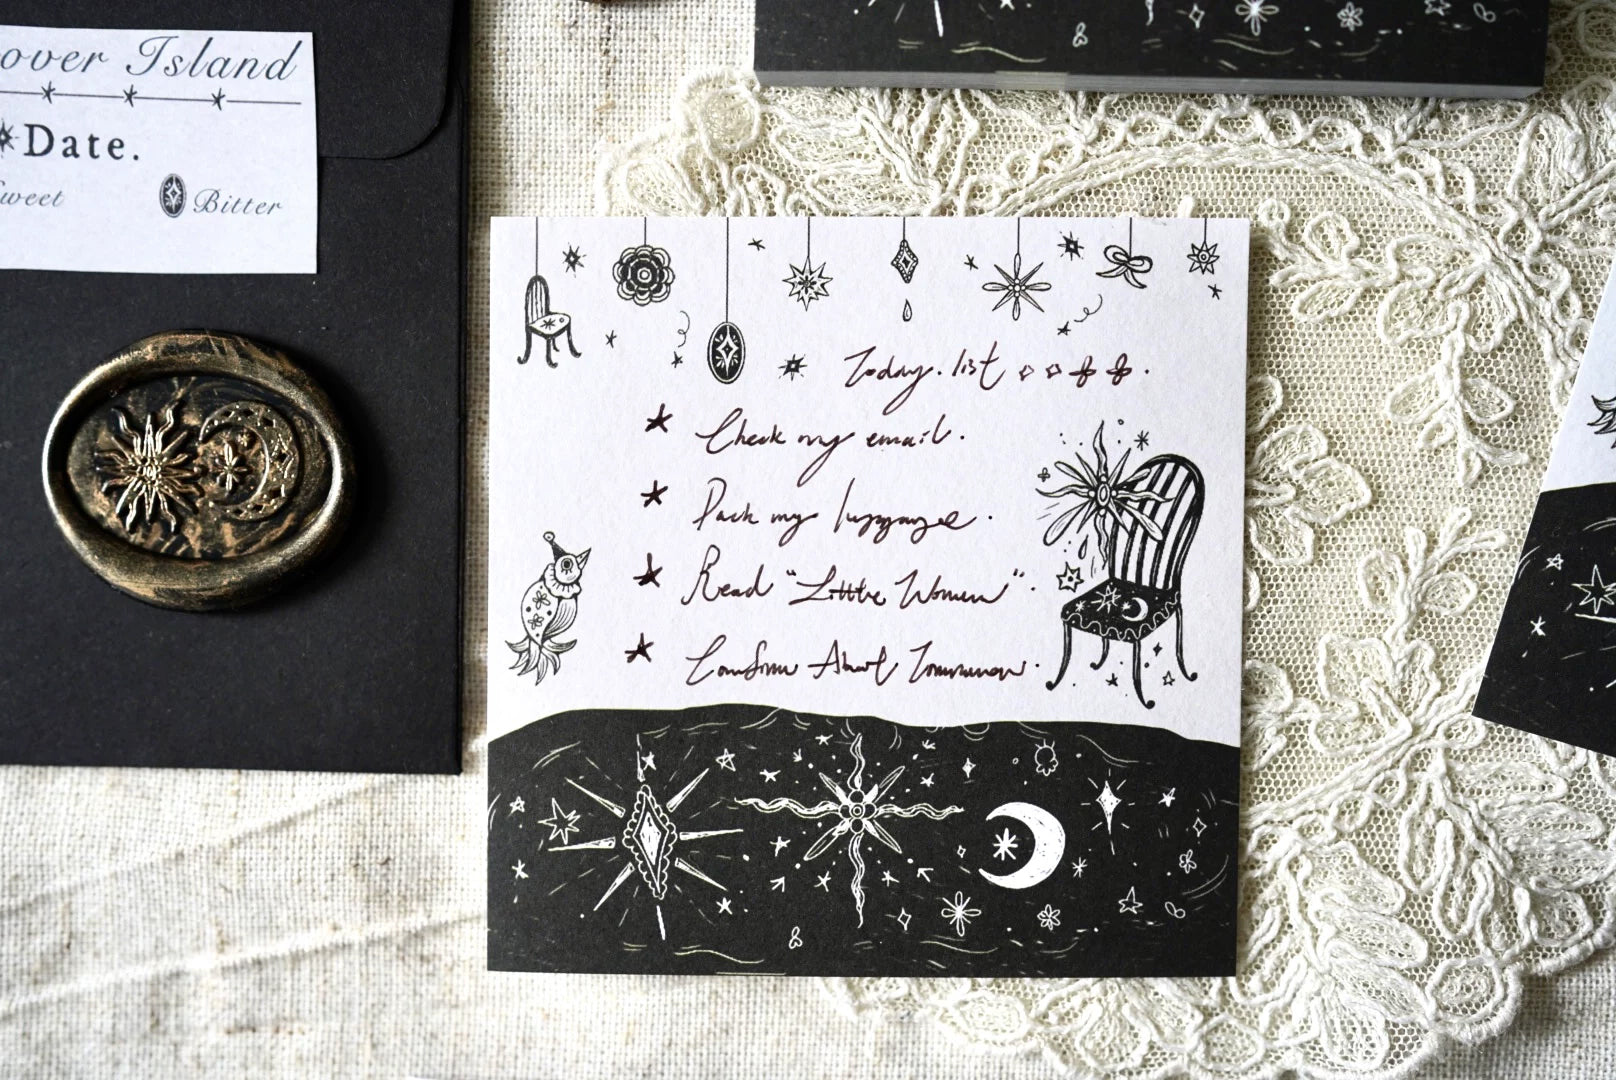 over Island
Date.
Sweet
Bitter
Today. list
Check my email.
Pack my luggage.
Read "Little Women".
Confirm About Tomorrow.